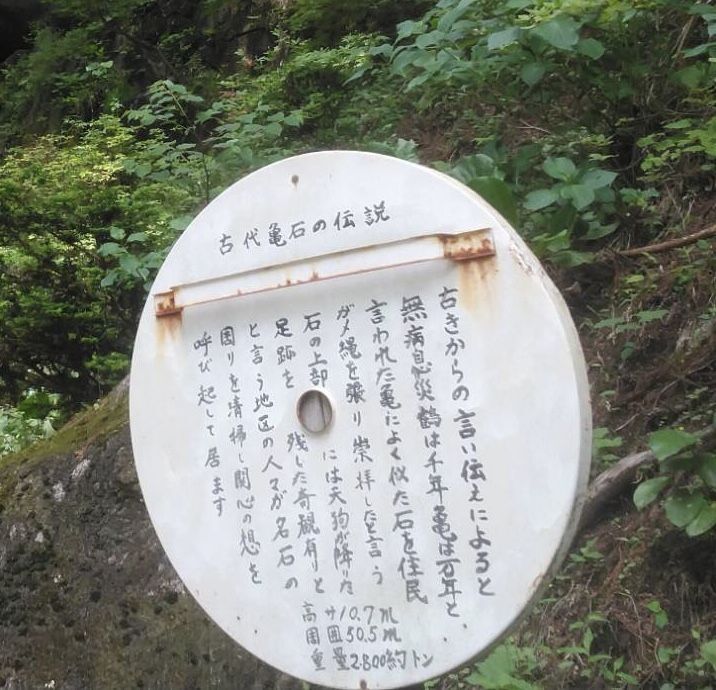 古代亀石の伝説
古きからの言い伝えによると
無病息災鶴は千年亀は万年と
言われた亀によく似た石を住民
がメ縄を張り崇拝したと言う
石の上部には天狗が降りた
足跡を残した奇観有りと
と言う地区の人々が名石の
囲りを清掃し関心の想を
呼び起して居ます
高サ10.7m
周囲50.5m
重量2.800約トン